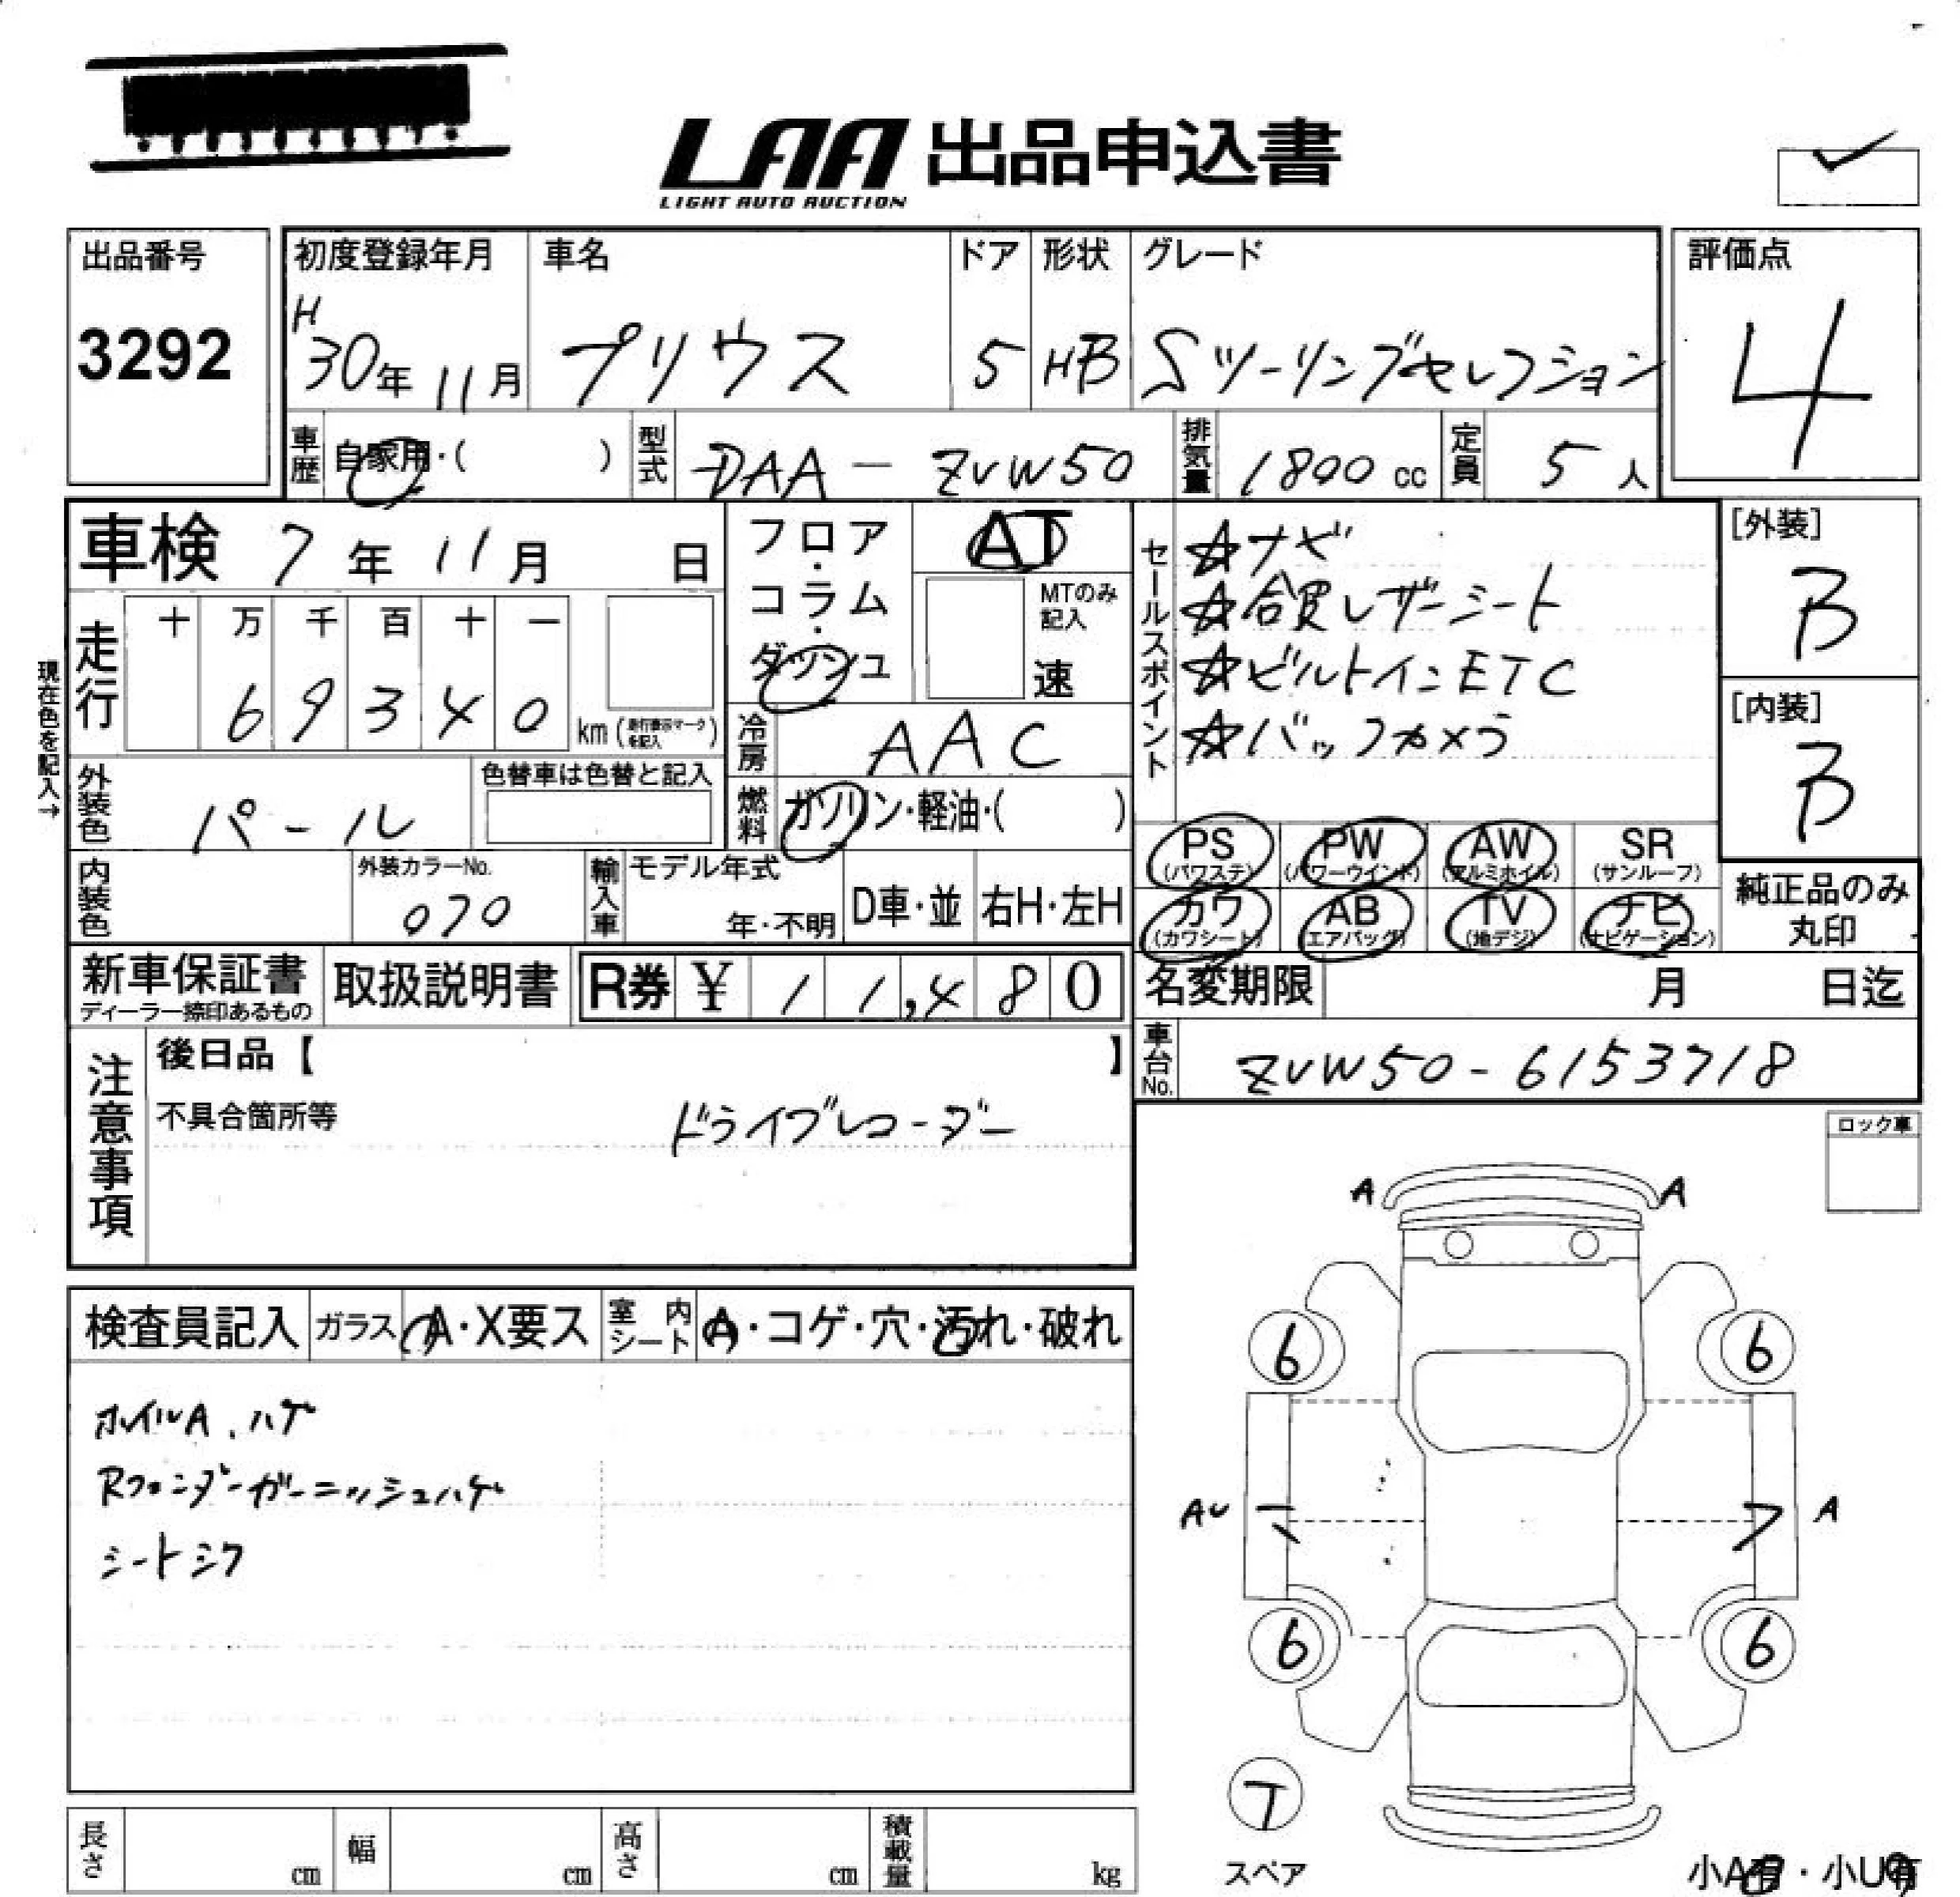 LAA 出品申込書
LIGHT AUTO AUCTION
出品番号
3292
初度登録年月
H
30年 11月
車名
プリウス
ドア
5
形状
HB
グレード
Sツーリングセレクション
評価点
4
車歴 自家用・( )
型式 DAA-ZVW50
排気量 1800 cc
定員 5 人
車検 7年 11月 日
フロア・コラム・ダッシュ
AT
MTのみ記入
速
セールスポイント
☆ナビ
☆合皮レザーシート
☆ビルトインETC
☆バックカメラ
[外装]
B
[内装]
B
現在色を記入→
走行
十 万 千 百 十 一
6 9 3 4 0 km (走行表示マークを記入)
冷房 AAC
燃料 ガソリン・軽油・( )
外装色 パール
色替車は色替と記入
内装色
外装カラーNo.
070
輸入車
モデル年式
年・不明
D車・並
右H・左H
PS (パワステ)
PW (パワーウインド)
AW (アルミホイル)
SR (サンルーフ)
カワ (カワシート)
AB (エアバッグ)
TV (地デジ)
ナビ (ナビゲーション)
純正品のみ
丸印
新車保証書
ディーラー捺印あるもの
取扱説明書
R券 ¥ 11,480
名変期限 月 日迄
車台No. ZVW50-6153718
注意事項
後日品【 】
不具合箇所等
ドライブレコーダー
ロック車
A A
6 6
AU A
6 6
T
スペア
小A有・小U有
検査員記入
ガラス A・X要ス
室内シート A・コゲ・穴・汚れ・破れ
ホイルA、ハゲ
Rフェンダーガーニッシュハゲ
シートシワ
長さ cm
幅 cm
高さ cm
積載量 kg